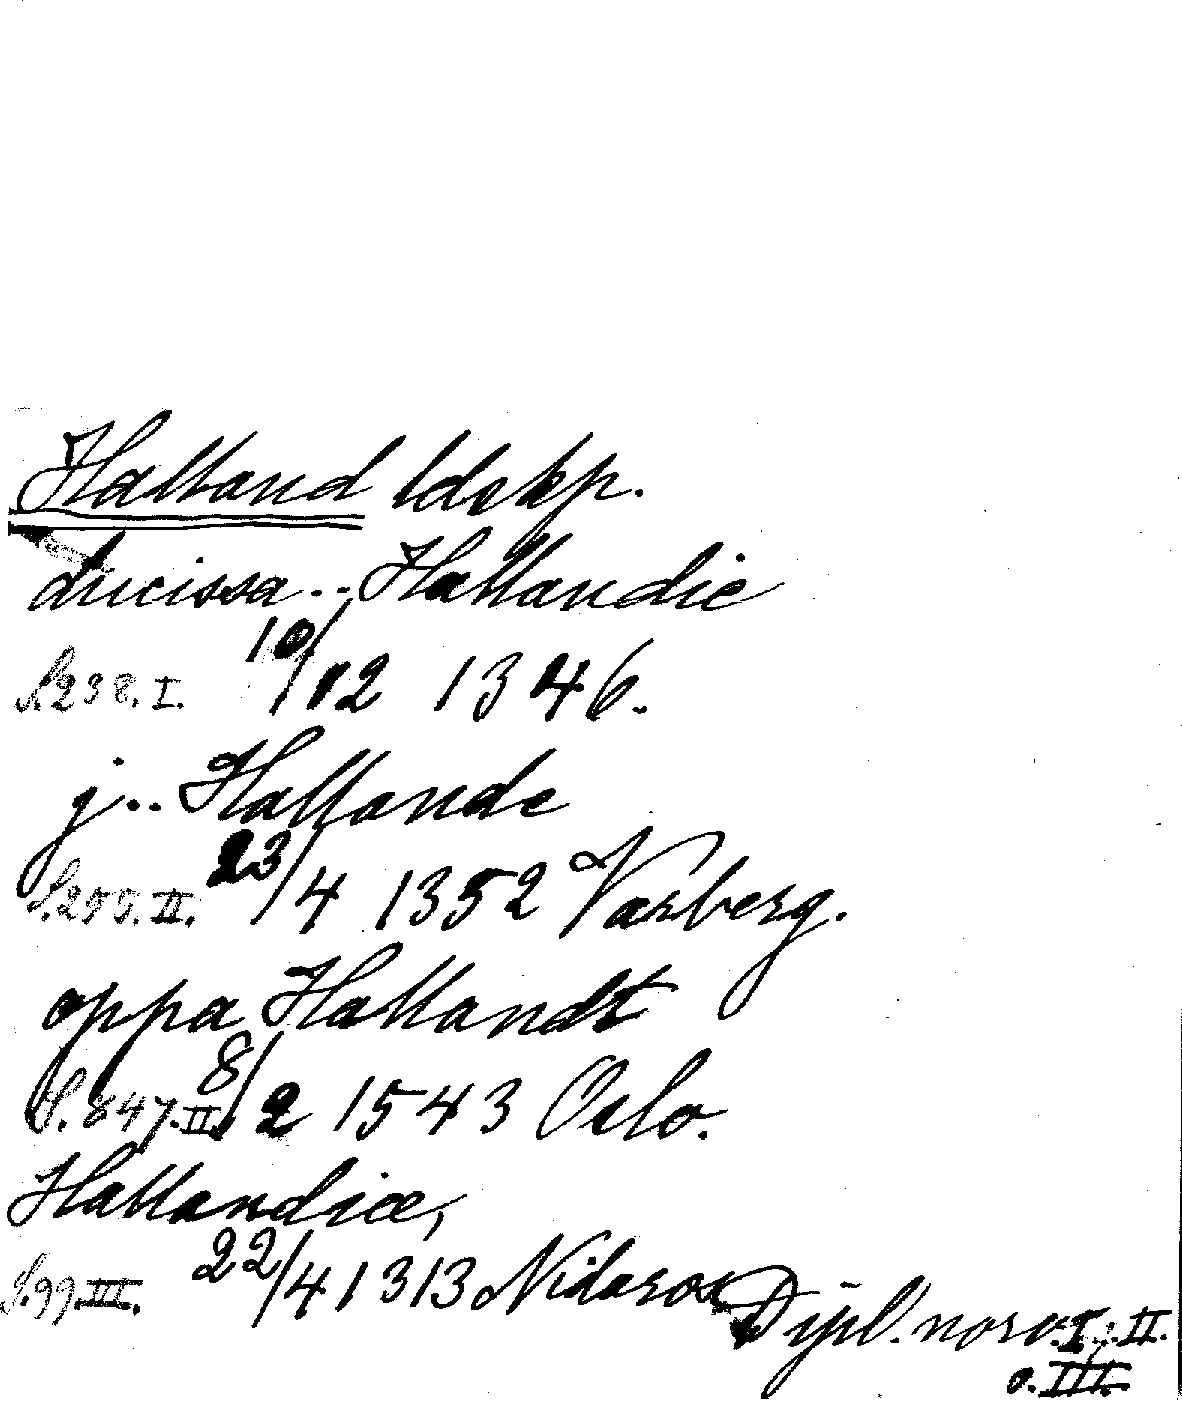 Halland ldskp.
ducissa .. Hallandie
S. 238. I. 10/12 1346.
j .. Hallande
S. 255. II. 23/4 1352 Varberg.
oppa Hallandt
S. 847. II. 8/2 1543 Oslo.
Hallandiæ,
S. 99. III. 22/4 1313 Nidaros Dipl. norv. I. II.
o. III.